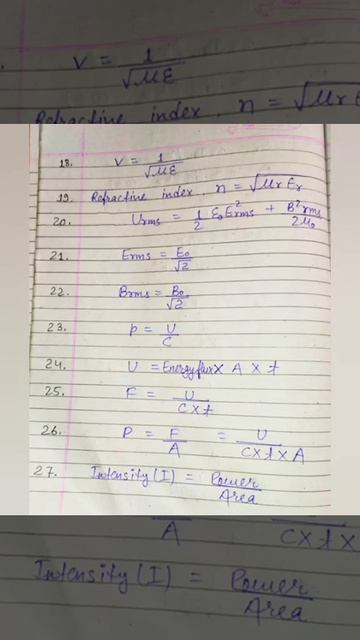 V = 1/√ME
Refractive index, n = √Mr
18. V = 1/√ME
19. Refractive index, n = √Mr Er
20. Urms = 1/2 ε₀E²rms + B²rms/2M₀
21. Erms = E₀/√2
22. Brms = B₀/√2
23. p = U/C
24. U = Energy flux × A × t
25. F = U/C×t
26. P = F/A = U/C×t×A
27. Intensity (I) = Power/Area
A C×t×
Intensity (I) = Power/Area